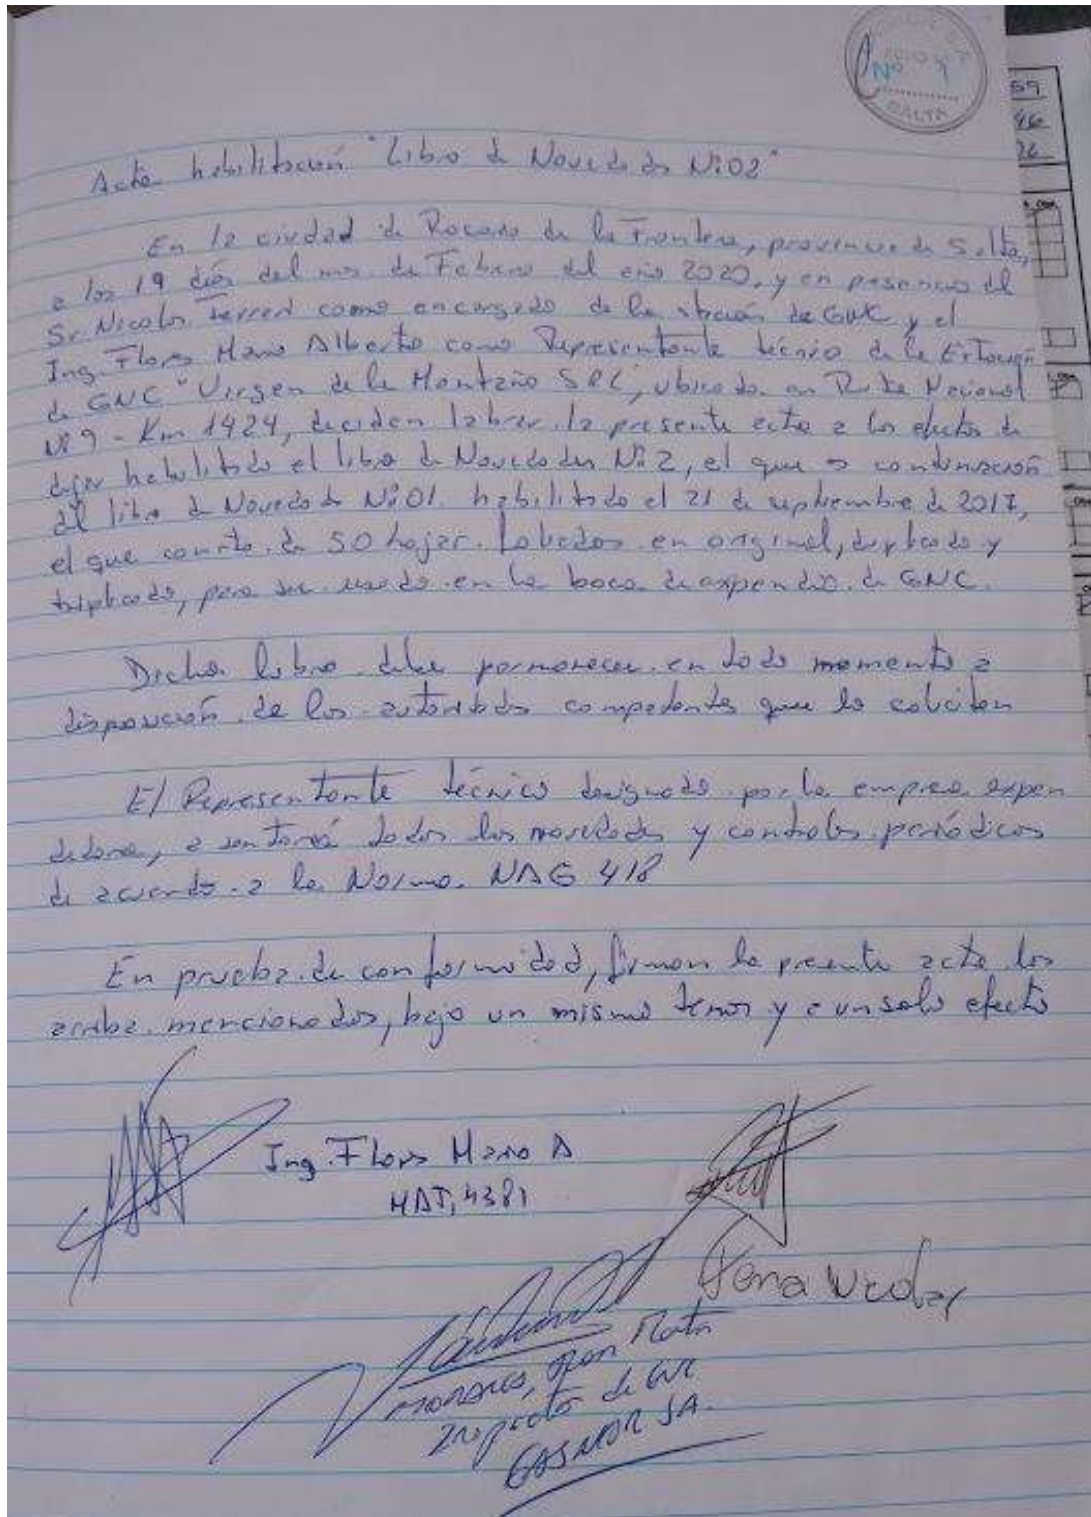 Nº 1
SALTA
59
46
26
Acta habilitación "Libro de Novedades Nº02"
En la ciudad de Rosario de la Frontera, provincia de Salta,
a los 19 días del mes de Febrero del año 2020, y en presencia del
Sr. Nicolas como encargado de la de GNC y el
Ing. Flores Mario Alberto como Representante técnico de la Estación
de GNC "Virgen de la Montaña SRL", ubicado en Ruta Nacional
Nº 9 - Km 1424, deciden labrar la presente acta a los efectos de
dejar habilitado el libro de Novedades Nº 2, el que es continuación
del libro de Novedades Nº01 habilitado el 21 de septiembre de 2017,
el que consta de 50 hojas foliados en original, duplicado y
triplicado, para ser usado en la boca de expendio de GNC.
Dicho libro debe permanecer en todo momento a
disposición de las autoridades competentes que lo soliciten
El Representante técnico designado por la empresa expen
dedora, asentará todos las novedades y controles periódicos
de acuerdo a la Norma NAG 418
En prueba de conformidad, firman la presente acta los
arriba mencionados, bajo un mismo tenor y a un solo efecto
Ing. Flores Mario A
MAT, 4381
Nicolas
de GNC
GASNOR SA.